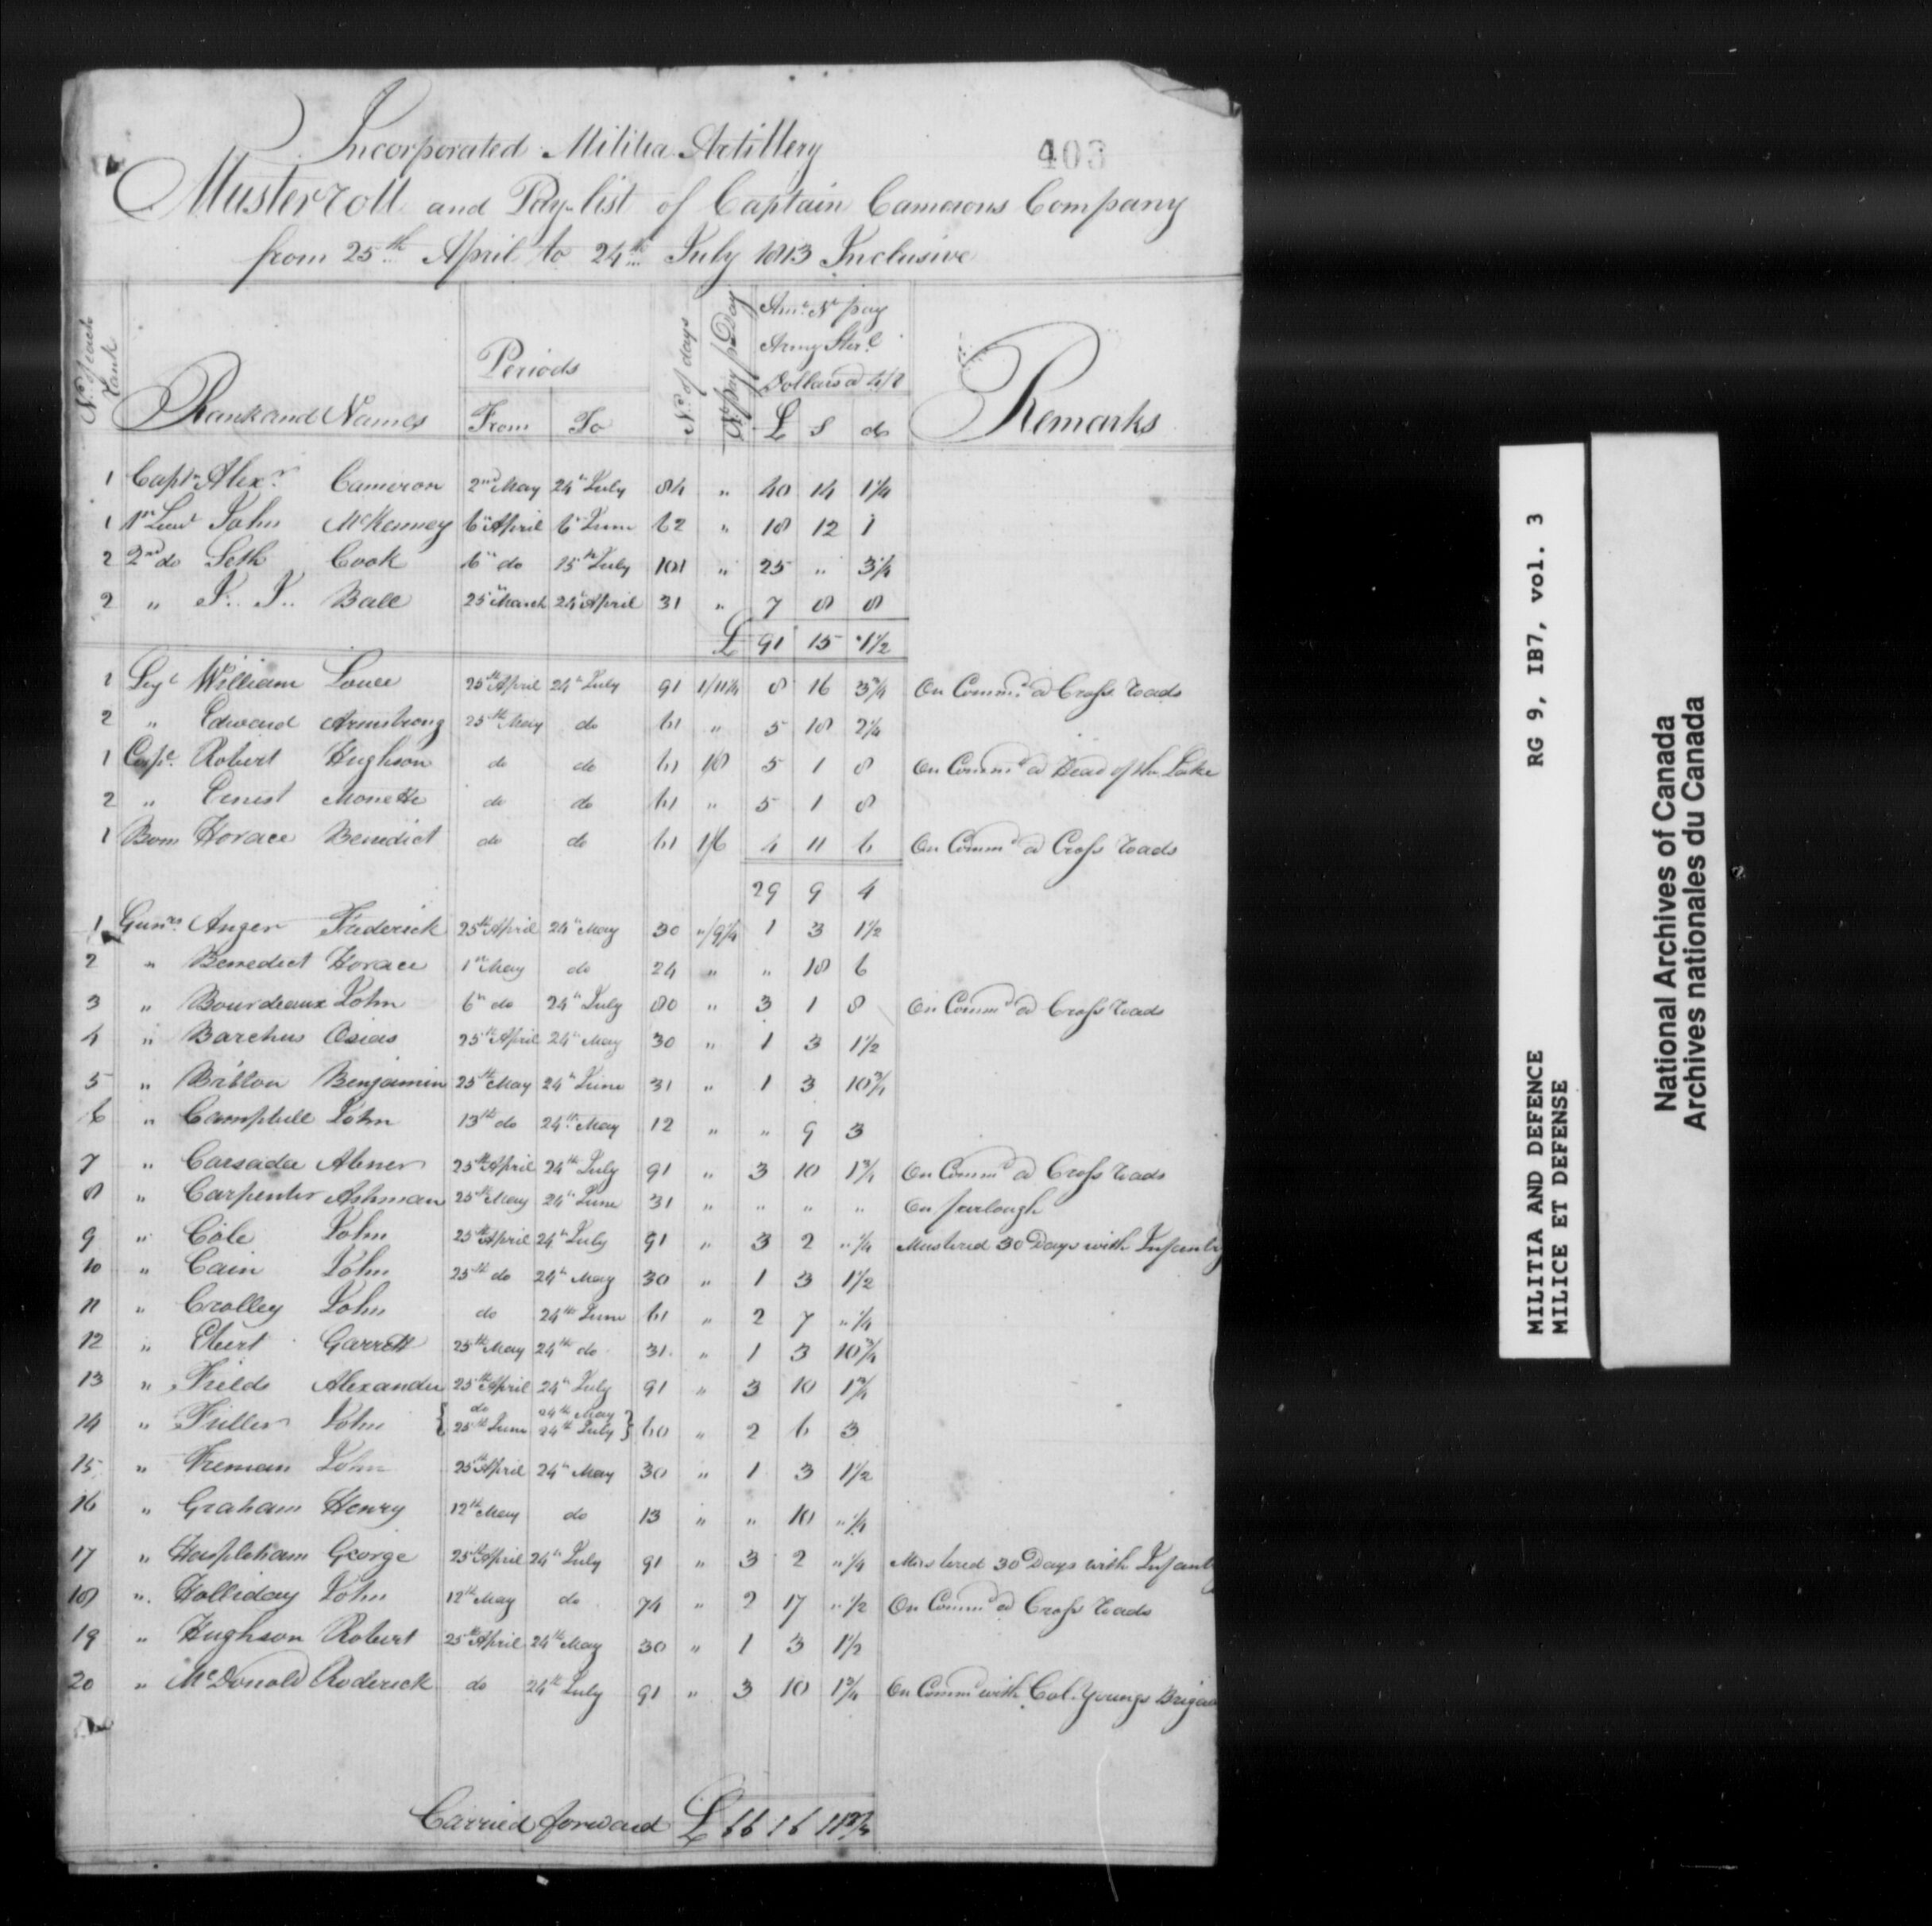 403
Incorporated Militia Artillery
Musterroll and Pay-list of Captain Camerons Company
from 25th April to 24th July 1813 Inclusive
No. of each Rank
Rank and Names
Periods
From To
No. of days
Nt. pay pr Day
Amt. Nt pay
Army Sterl.
Dollars @ 4/8
£ S d
Remarks
1 Captn Alexr. Cameron 2nd May 24th July 84 " 40 14 1¼
1 1st Lieut John McKenney 6th April 6th June 62 " 18 12 1
2 2nd do Seth Cook 6th do 15th July 101 " 25 " 3¼
2 " J. J. Ball 25th March 24th April 31 " 7 8 8
£ 91 15 1½
1 Sgt William 25th April 24th July 91 1/11¼ 8 16 3¾ On Commd @ Cross Roads
2 " Edward Armstrong 25th May do 61 " 5 18 2¼
1 Corpl. Robert Hughson do do 61 1/8 5 1 8 On Commd @ Head of the Lake
2 " Ernest Monette do do 61 " 5 1 8
1 Bom Horace Benedict do do 61 1/6 4 11 6 On Commd @ Cross Roads
29 9 4
1 Gunrs. Anger Frederick 25th April 24th May 30 "/9¼ 1 3 1½
2 " Benedict Horace 1st May do 24 " " 18 6
3 " Bourdeaux John 6th do 24th July 80 " 3 1 8 On Commd @ Cross Roads
4 " Barchus Osias 25th April 24th May 30 " 1 3 1½
5 " Britton Benjamin 25th May 24th June 31 " 1 3 10¾
6 " Campbell John 13th do 24th May 12 " " 9 3
7 " Carsada Abner 25th April 24th July 91 " 3 10 1¾ On Commd @ Cross Roads
8 " Carpenter Ashman 25th May 24th June 31 " " " " On furlough
9 " Cole John 25th April 24th July 91 " 3 2 "¼ Mustered 30 Days with Infantry
10 " Cain John 25th do 24th May 30 " 1 3 1½
11 " Crolley John do 24th June 61 " 2 7 "¼
12 " Ebert Garrett 25th May 24th do 31 " 1 3 10¾
13 " Fields Alexander 25th April 24th July 91 " 3 10 1¾
14 " Fuller John { do 24th May
25th June 24th July } 60 " 2 6 3
15 " Freman John 25th April 24th May 30 " 1 3 1½
16 " Graham Henry 12th May do 13 " " 10 "¼
17 " George 25th April 24th July 91 " 3 2 "¼ Mustered 30 Days with Infant
18 " Holliday John 12th May do 74 " 2 17 "½ On Commd @ Cross Roads
19 " Hughson Robert 25th April 24th May 30 " 1 3 1½
20 " McDonald Roderick do 24th July 91 " 3 10 1¾ On Commd with Col. Youngs Brigad
Carried forward £ 66 16 11¾
RG 9, IB7, vol. 3
MILITIA AND DEFENCE
MILICE ET DEFENSE
National Archives of Canada
Archives nationales du Canada